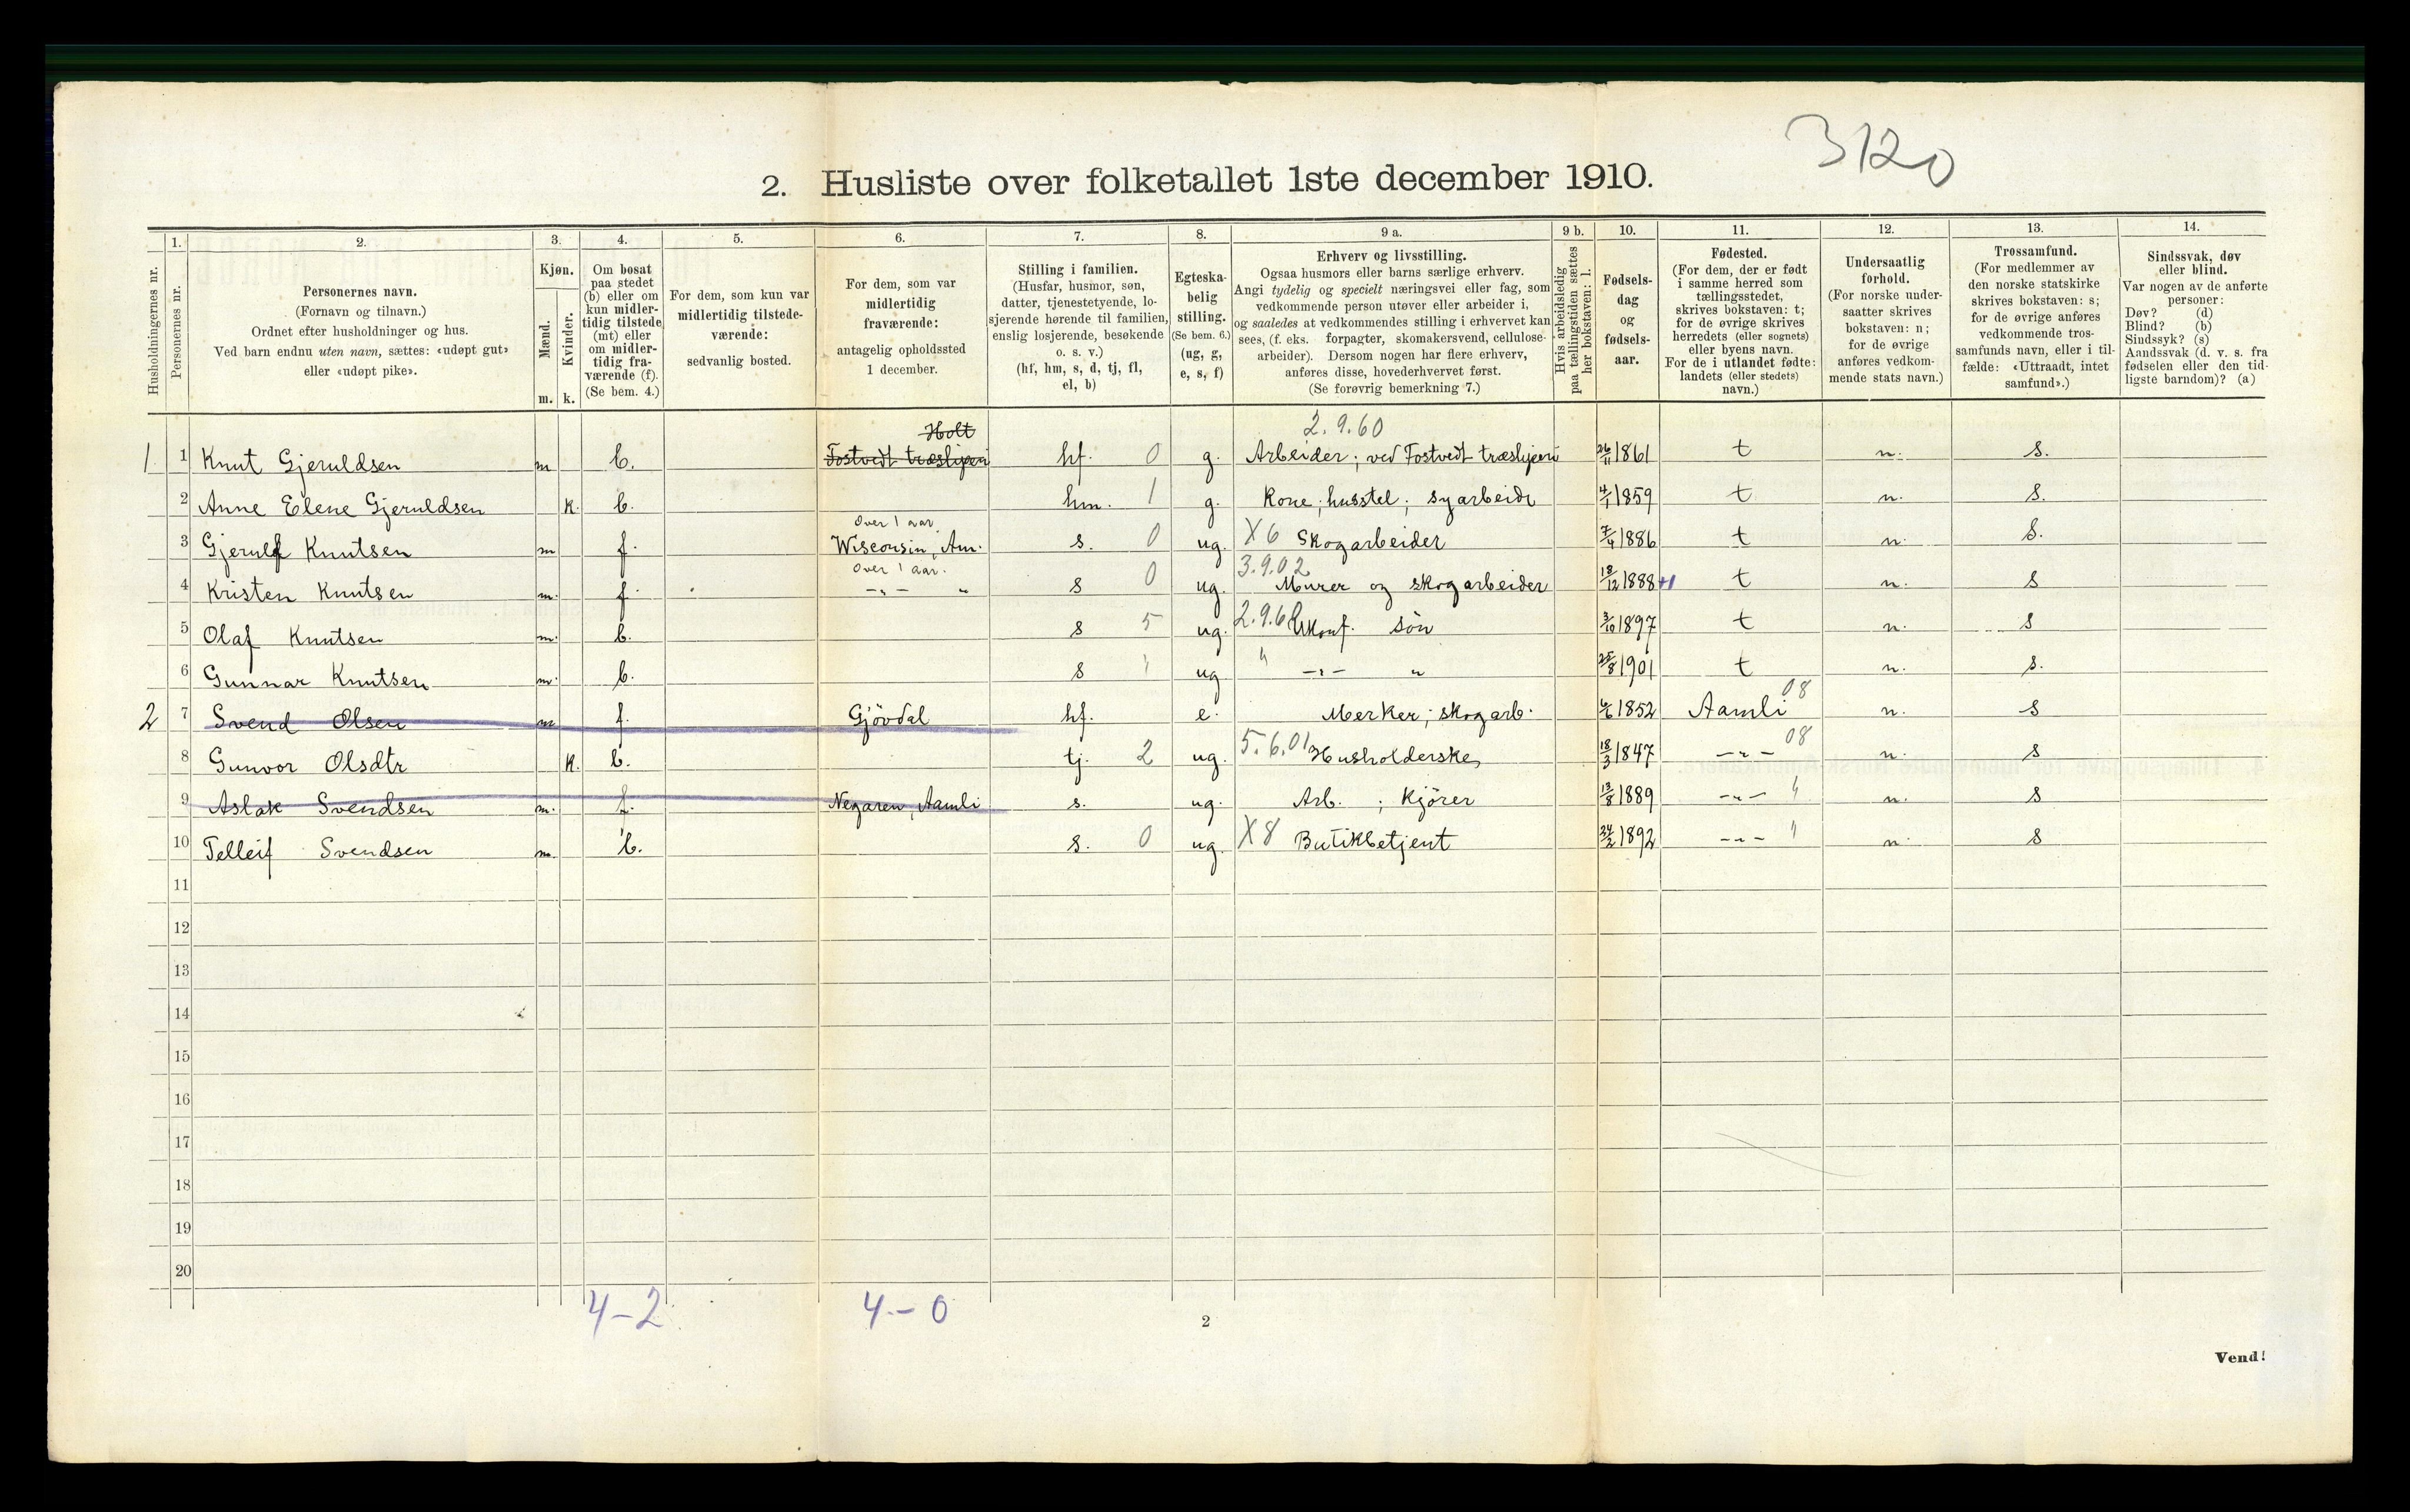 3120
2. Husliste over folketallet 1ste december 1910.
Husholdningernes nr.
1. Personernes nr.
2.
Personernes navn.
(Fornavn og tilnavn.)
Ordnet efter husholdninger og hus.
Ved barn endnu uten navn, sættes: «udøpt gut»
eller «udøpt pike».
3.
Kjøn.
Mænd. Kvinder.
m. k.
4.
Om bosat
paa stedet
(b) eller om
kun midler-
tidig tilstede
(mt) eller
om midler-
tidig fra-
værende (f).
(Se bem. 4.)
5.
For dem, som kun var
midlertidig tilstede-
værende:
sedvanlig bosted.
6.
For dem, som var
midlertidig
fraværende:
antagelig opholdssted
1 december.
7.
Stilling i familien.
(Husfar, husmor, søn,
datter, tjenestetyende, lo-
sjerende hørende til familien,
enslig losjerende, besøkende
o. s. v.)
(hf, hm, s, d, tj, fl,
el, b)
8.
Egteska-
belig
stilling.
(Se bem. 6.)
(ug, g,
e, s, f)
9 a.
Erhverv og livsstilling.
Ogsaa husmors eller barns særlige erhverv.
Angi tydelig og specielt næringsvei eller fag, som
vedkommende person utøver eller arbeider i,
og saaledes at vedkommendes stilling i erhvervet kan
sees, (f. eks. forpagter, skomakersvend, cellulose-
arbeider). Dersom nogen har flere erhverv,
anføres disse, hovederhvervet først.
(Se forøvrig bemerkning 7.)
9 b.
Hvis arbeidsledig
paa tællingstiden sættes
her bokstaven: l.
10.
Fødsels-
dag
og
fødsels-
aar.
11.
Fødested.
(For dem, der er født
i samme herred som
tællingsstedet,
skrives bokstaven: t;
for de øvrige skrives
herredets (eller sognets)
eller byens navn.
For de i utlandet fødte:
landets (eller stedets)
navn.)
12.
Undersaatlig
forhold.
(For norske under-
saatter skrives
bokstaven: n;
for de øvrige
anføres vedkom-
mende stats navn.)
13.
Trossamfund.
(For medlemmer av
den norske statskirke
skrives bokstaven: s;
for de øvrige anføres
vedkommende tros-
samfunds navn, eller i til-
fælde: «Uttraadt, intet
samfund».)
14.
Sindssvak, døv
eller blind.
Var nogen av de anførte
personer:
Døv? (d)
Blind? (b)
Sindssyk? (s)
Aandssvak (d. v. s. fra
fødselen eller den tid-
ligste barndom)? (a)
Holt 2.9.60
1. 1 Knut Gjeruldsen m b. Fostvedt træsliperi hf. 0 g. Arbeider; ved Fostvedt træsliperi 26/11 1861 t n. s.
2 Anne Elene Gjeruldsen k. b. hm. 1 g. Kone; husstel; syarbeide 4/1 1859 t n. s.
Over 1 aar.
3 Gjerulf Knutsen m f. Wisconsin, Am. s. 0 ug. X6 Skogarbeider 7/4 1886 t n. s.
Over 1 aar. 3.9.02
4 Kristen Knutsen m. f. -"- " s 0 ug. Murer og skogarbeider 18/12 1888 t n. s
5 Olaf Knutsen m. b. s 5 ug. 2.9.60 Ukonf. søn 3/10 1897 t n. s
6 Gunnar Knutsen m. b. s " ug " -"- " 25/8 1901 t n. s.
08
2 7 Svend Olsen m f. Gjövdal hf. e. Merker; skogarb. 6/6 1852 Aamli n. s
08
8 Gunvor Olsdtr k. b. tj. 2 ug. 5.6.01 Husholderske 18/3 1847 -"- n. s
9 Aslak Svendsen m. f. Negaren, Aamli s. ug. Arb. ; Kjörer 13/8 1889 -"- " n. s
10 Telleif Svendsen m. b. s. 0 ug. X8 Butikbetjent 24/2 1892 -"- " n. s
11
12
13
14
15
16
17
18
19
20
4-2 4-0
2
Vend!